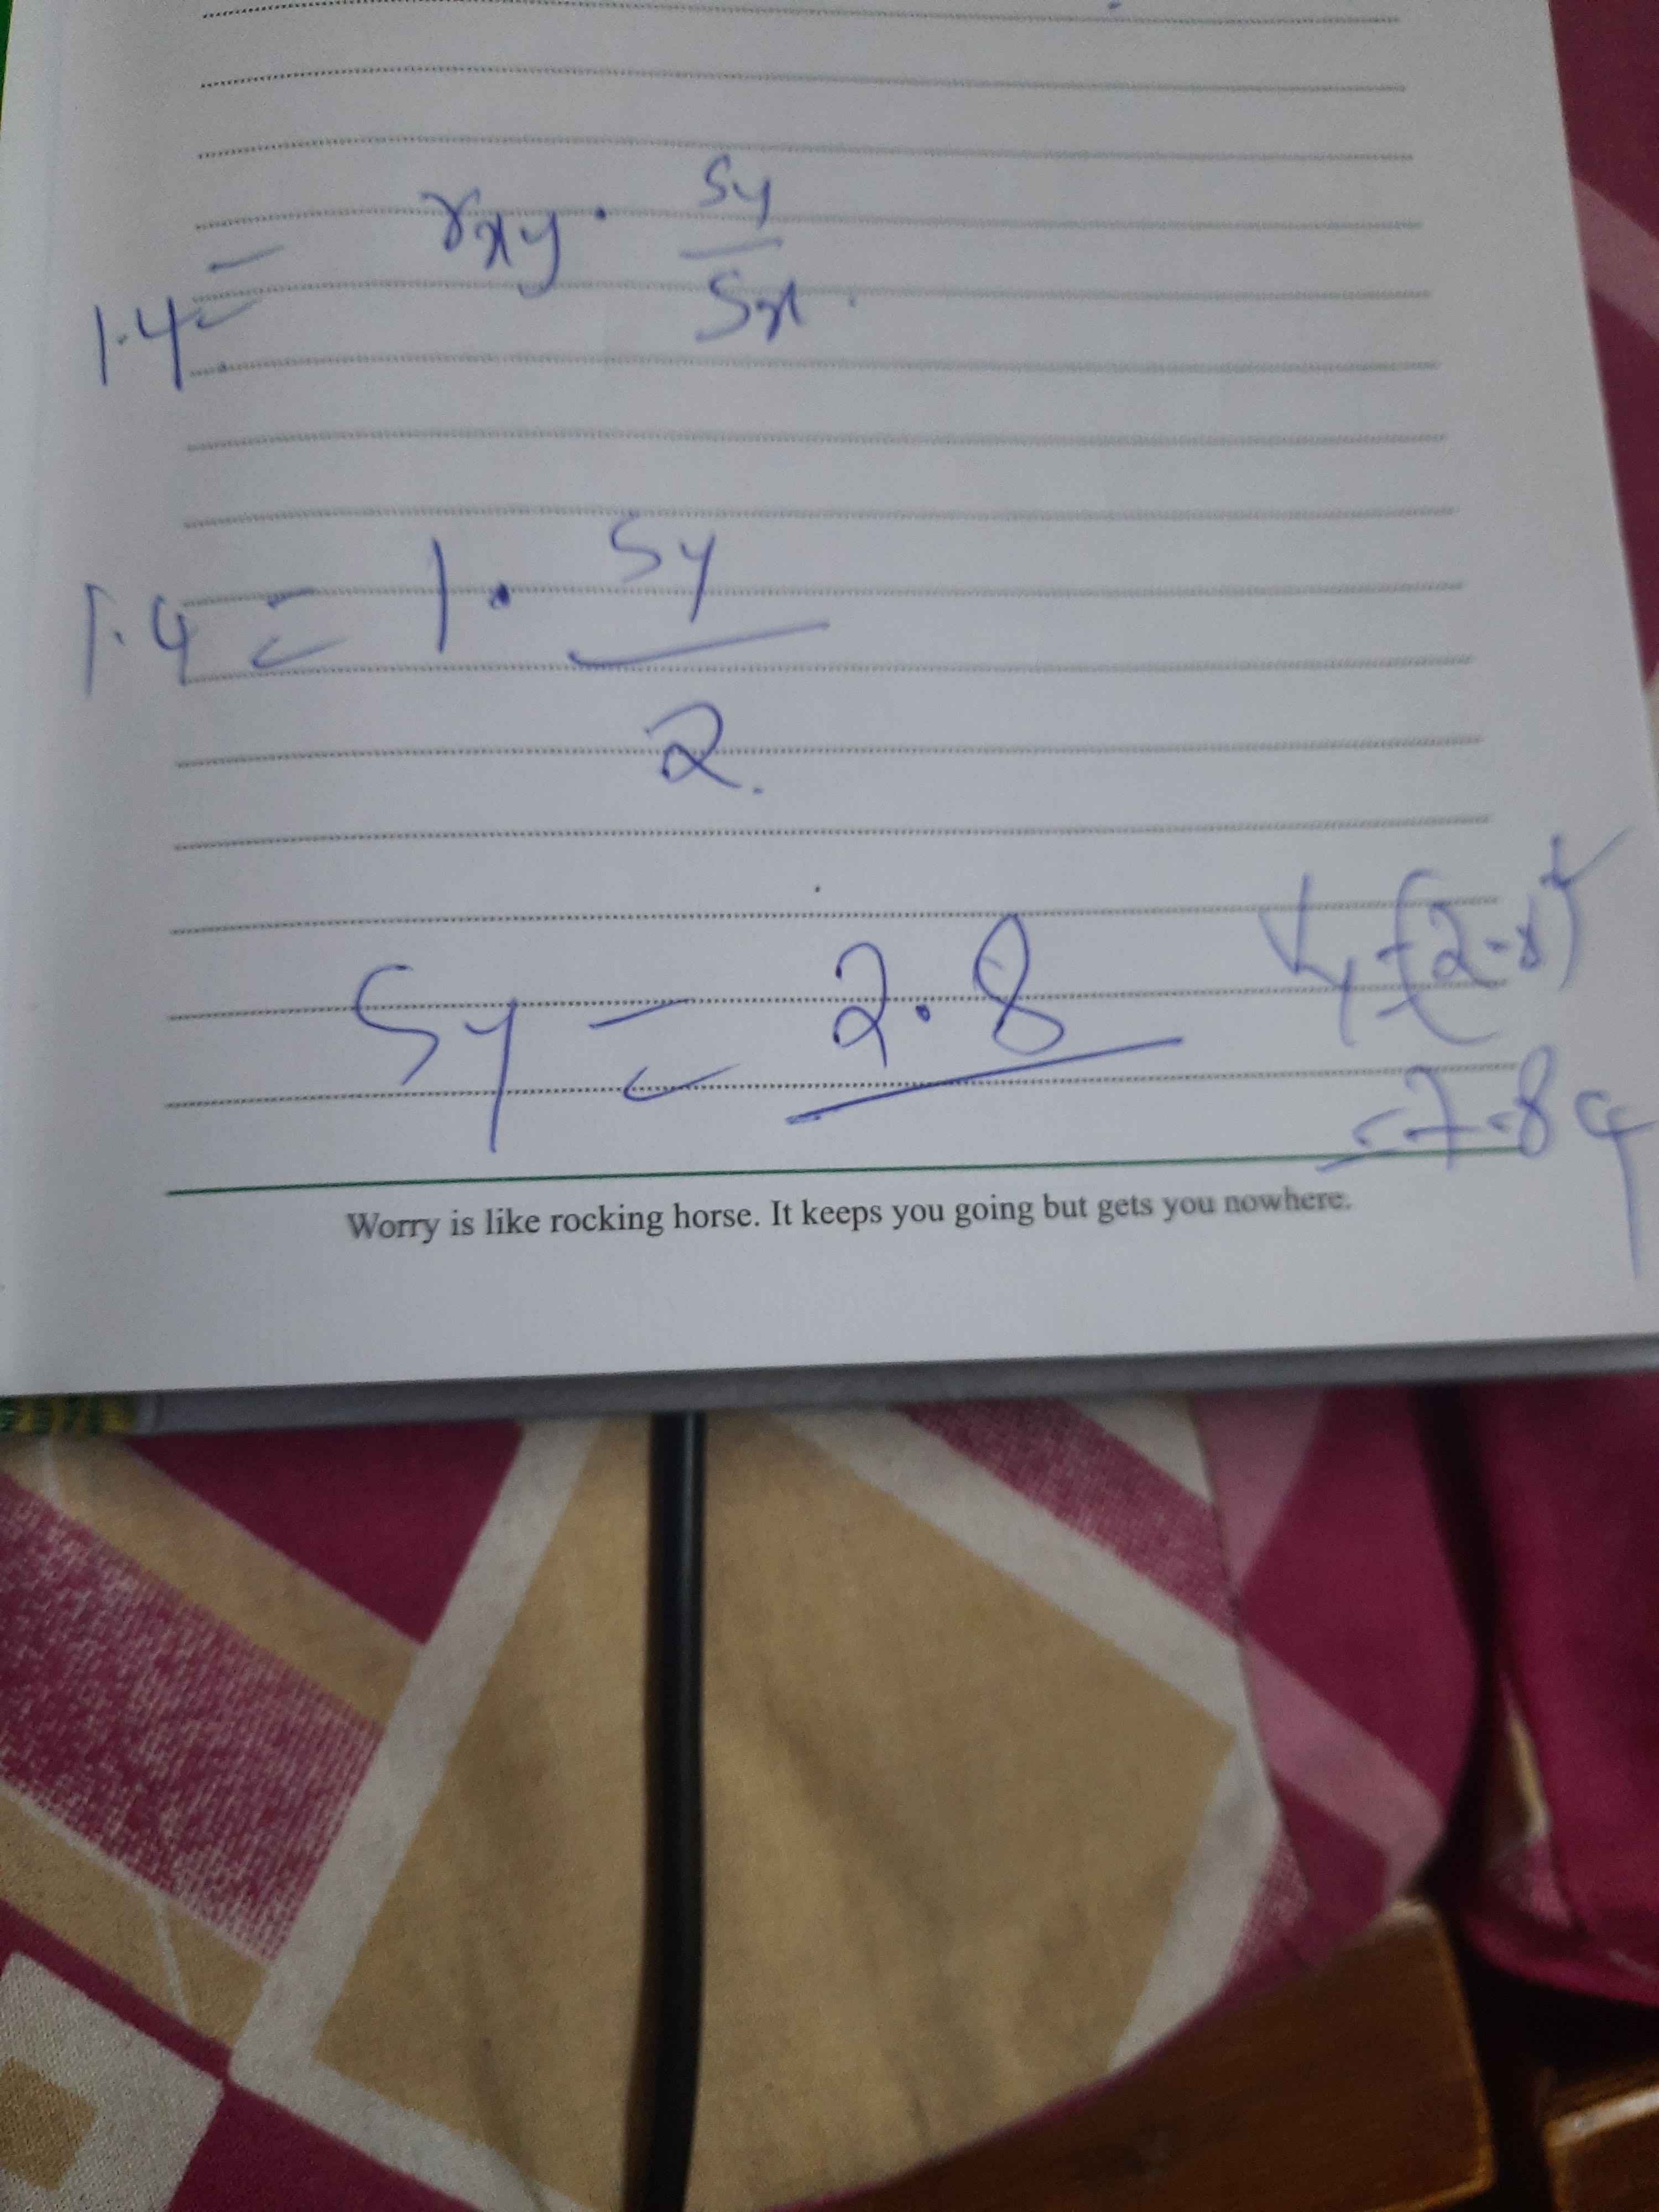 1.4 = rxy . Sy/Sx.
1.4 = 1 . Sy/2.
Sy = 2.8
= 7.84
Worry is like rocking horse. It keeps you going but gets you nowhere.